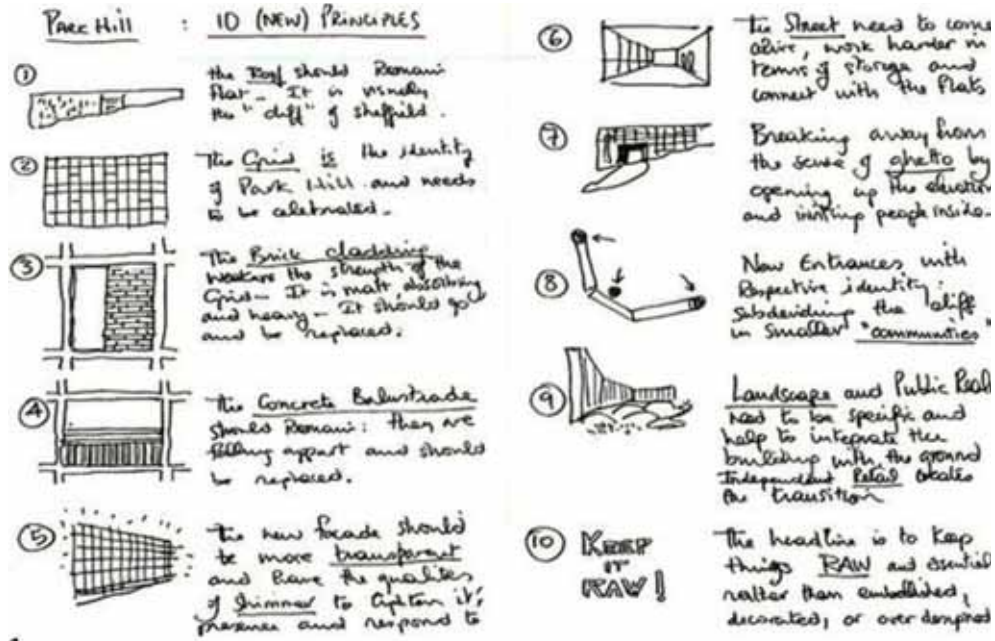 PARK HILL : 10 (NEW) PRINCIPLES
①
the Roof should Remain
flat - It is visually
the "cliff" of sheffield.
②
The Grid is the identity
of Park Hill and needs
to be celebrated.
③
The Brick cladding
weakens the strength of the
Grid - It is matt absorbing
and heavy - It should go
and be replaced.
④
The Concrete Balustrade
should Remain: they are
falling appart and should
be replaced.
⑤
The new facade should
be more transparent
and have the qualities
of shimmer to lighten it's
presence and respond to
⑥
The Street need to come
alive, work harder in
terms of storage and
connect with the flats
⑦
Breaking away from
the sense of ghetto by
opening up the elevation
and inviting people inside.
⑧
New Entrances with
Respective identity:
subdividing the cliff
in smaller "communities"
⑨
Landscape and Public Realm
need to be specific and
help to integrate the
building with the ground
Independent Retail creates
the transition
⑩
KEEP
IT
RAW!
The headline is to keep
things RAW and essential
rather than embellished,
decorated, or over designed